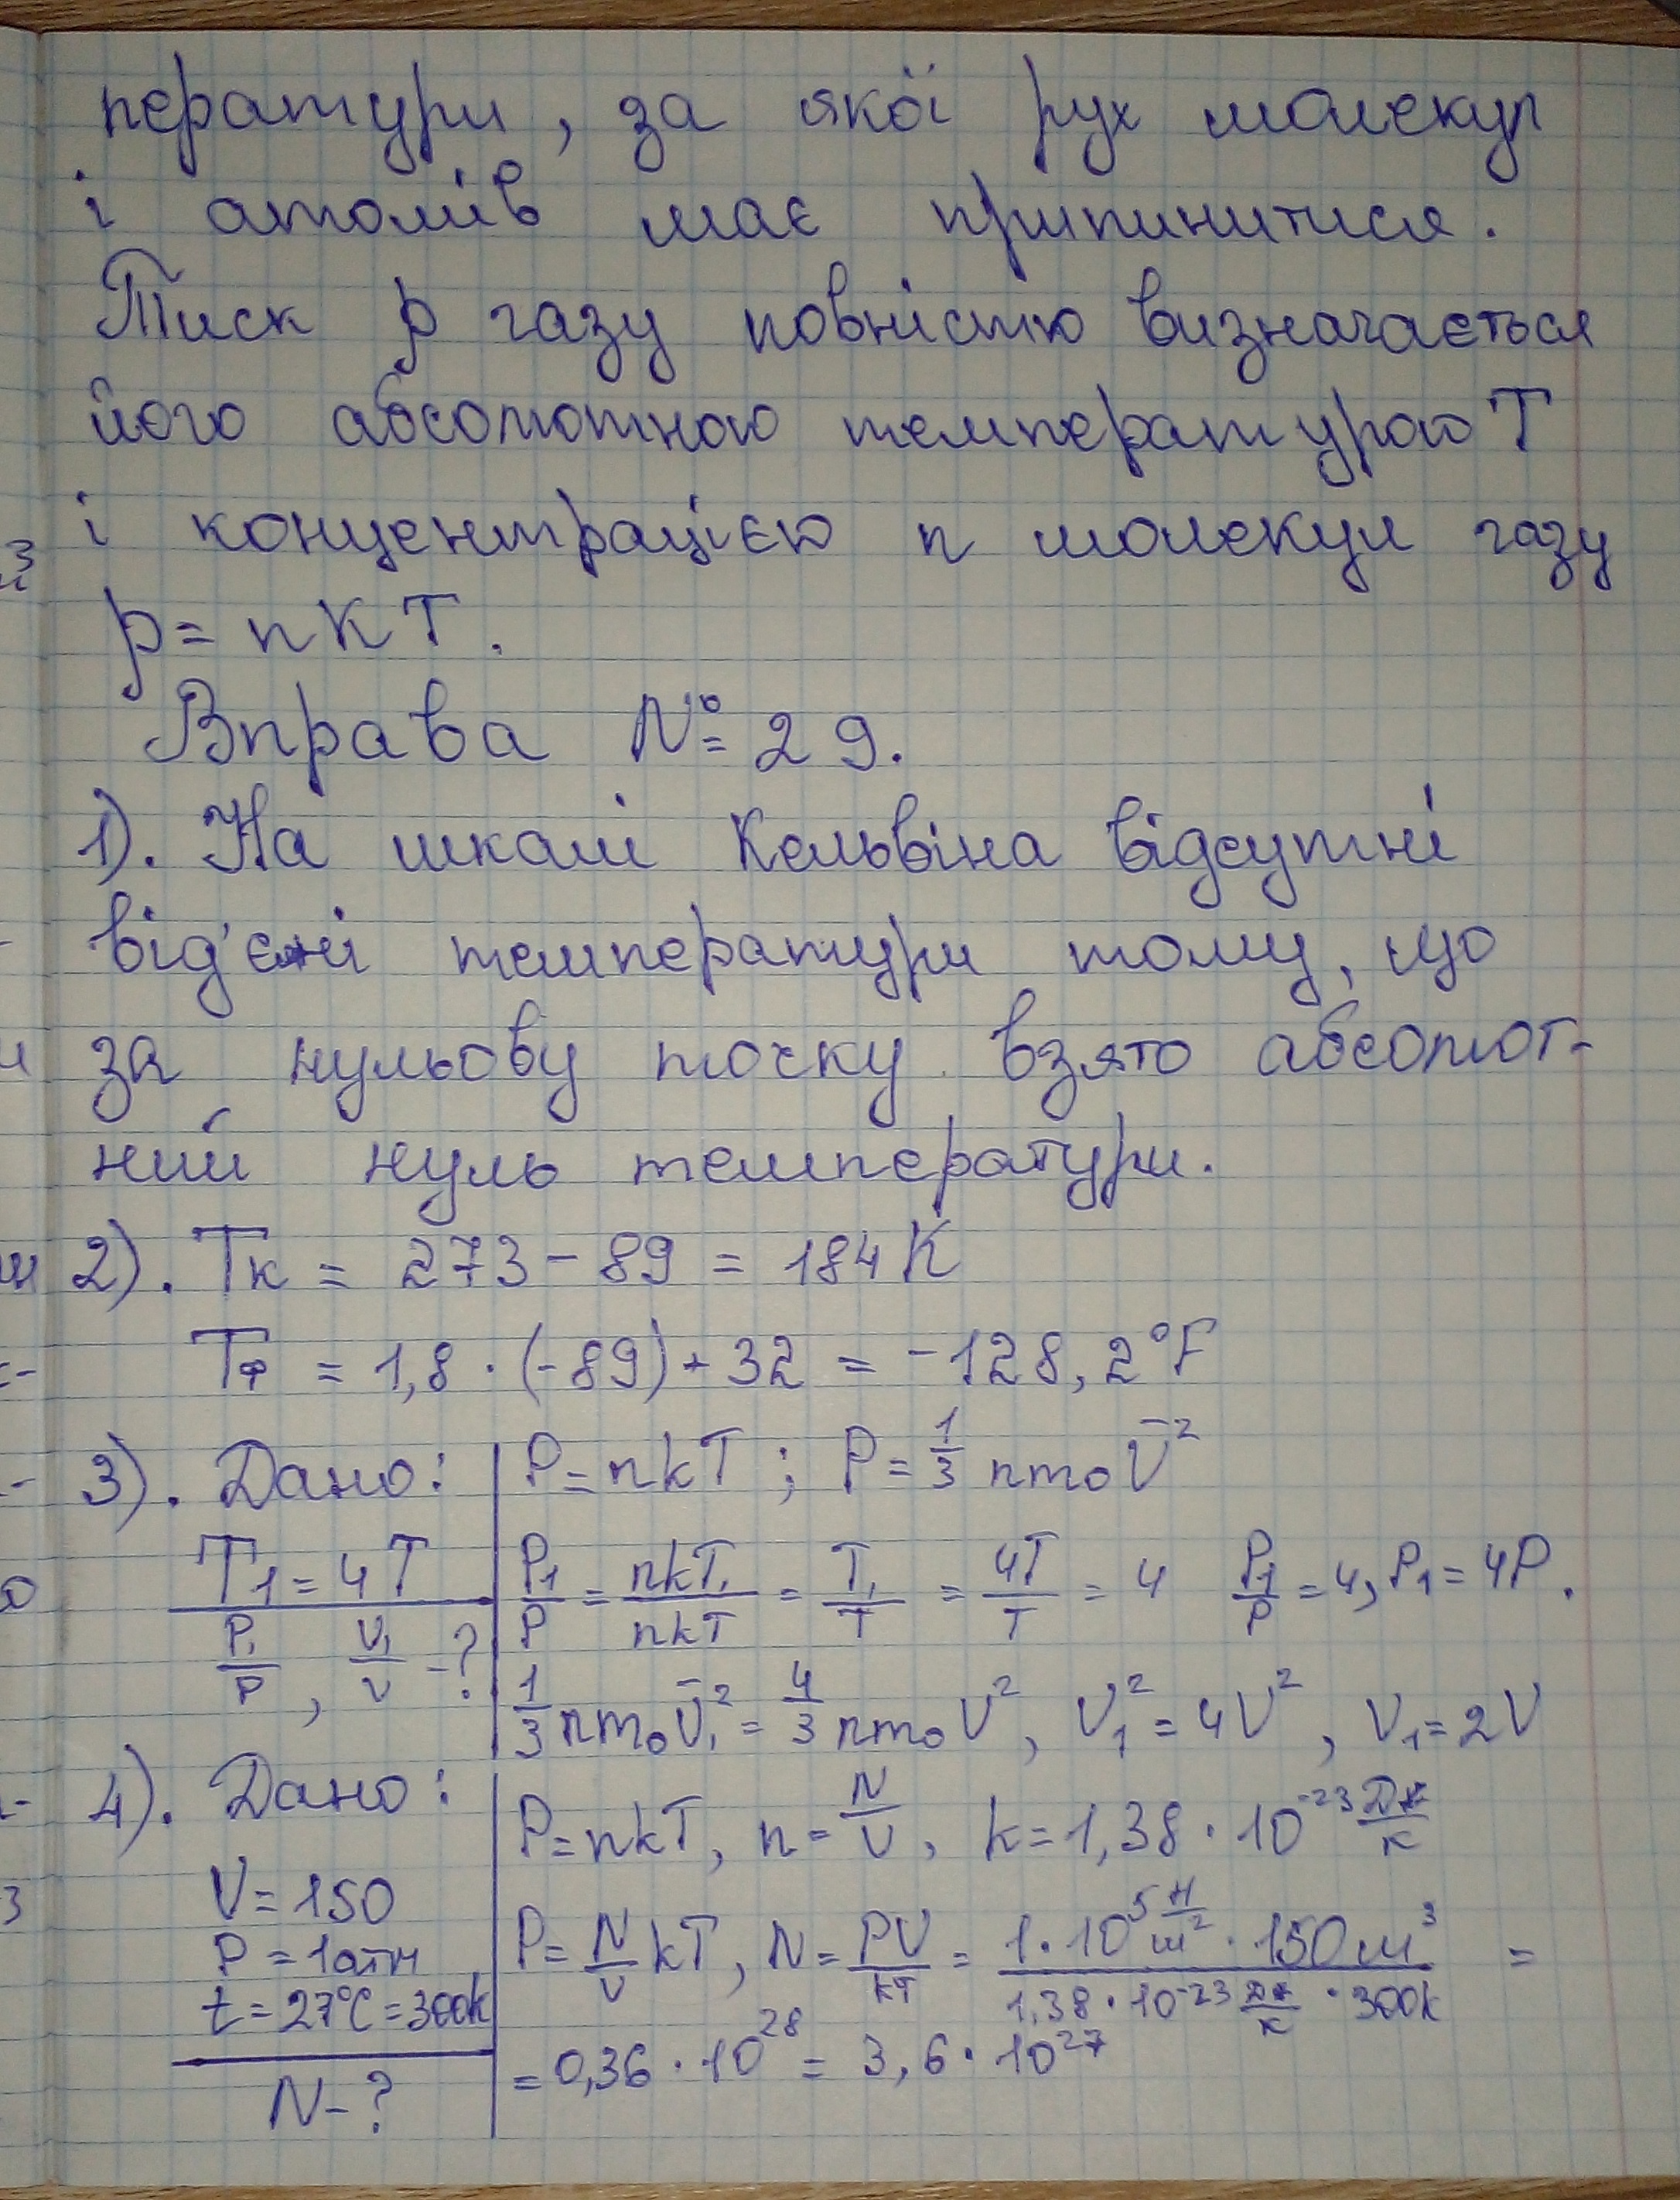 ператури, за якої рух молекул
і атомів має припинитися.
Тиск p газу повністю визначається
його абсолютною температурою T
і концентрацією n молекул газу
p = nKT.
Вправа № 29.
1). На шкалі Кельвіна відсутні
від'ємні температури тому, що
за нульову точку взято абсолют-
ний нуль температури.
2). Tк = 273 - 89 = 184 K
Tф = 1,8 · (-89) + 32 = -128,2 °F
3). Дано: P = nkT ; P = 1/3 nm₀ v̄²
T₁ = 4T P₁/P = nkT₁/nkT = T₁/T = 4T/T = 4 P₁/P = 4, P₁ = 4P.
P₁/P, V₁/V - ? 1/3 nm₀ v̄₁² = 4/3 nm₀ V², V₁² = 4V², V₁ = 2V
4). Дано: P = nkT, n = N/V, k = 1,38 · 10⁻²³ Дж/К
V = 150 P = N/V kT, N = PV/kT = 1 · 10⁵ Н/м² · 150 м³ / 1,38 · 10⁻²³ Дж/К · 300k =
P = 1 атм
t = 27°C = 300k
N - ? = 0,36 · 10²⁸ = 3,6 · 10²⁷